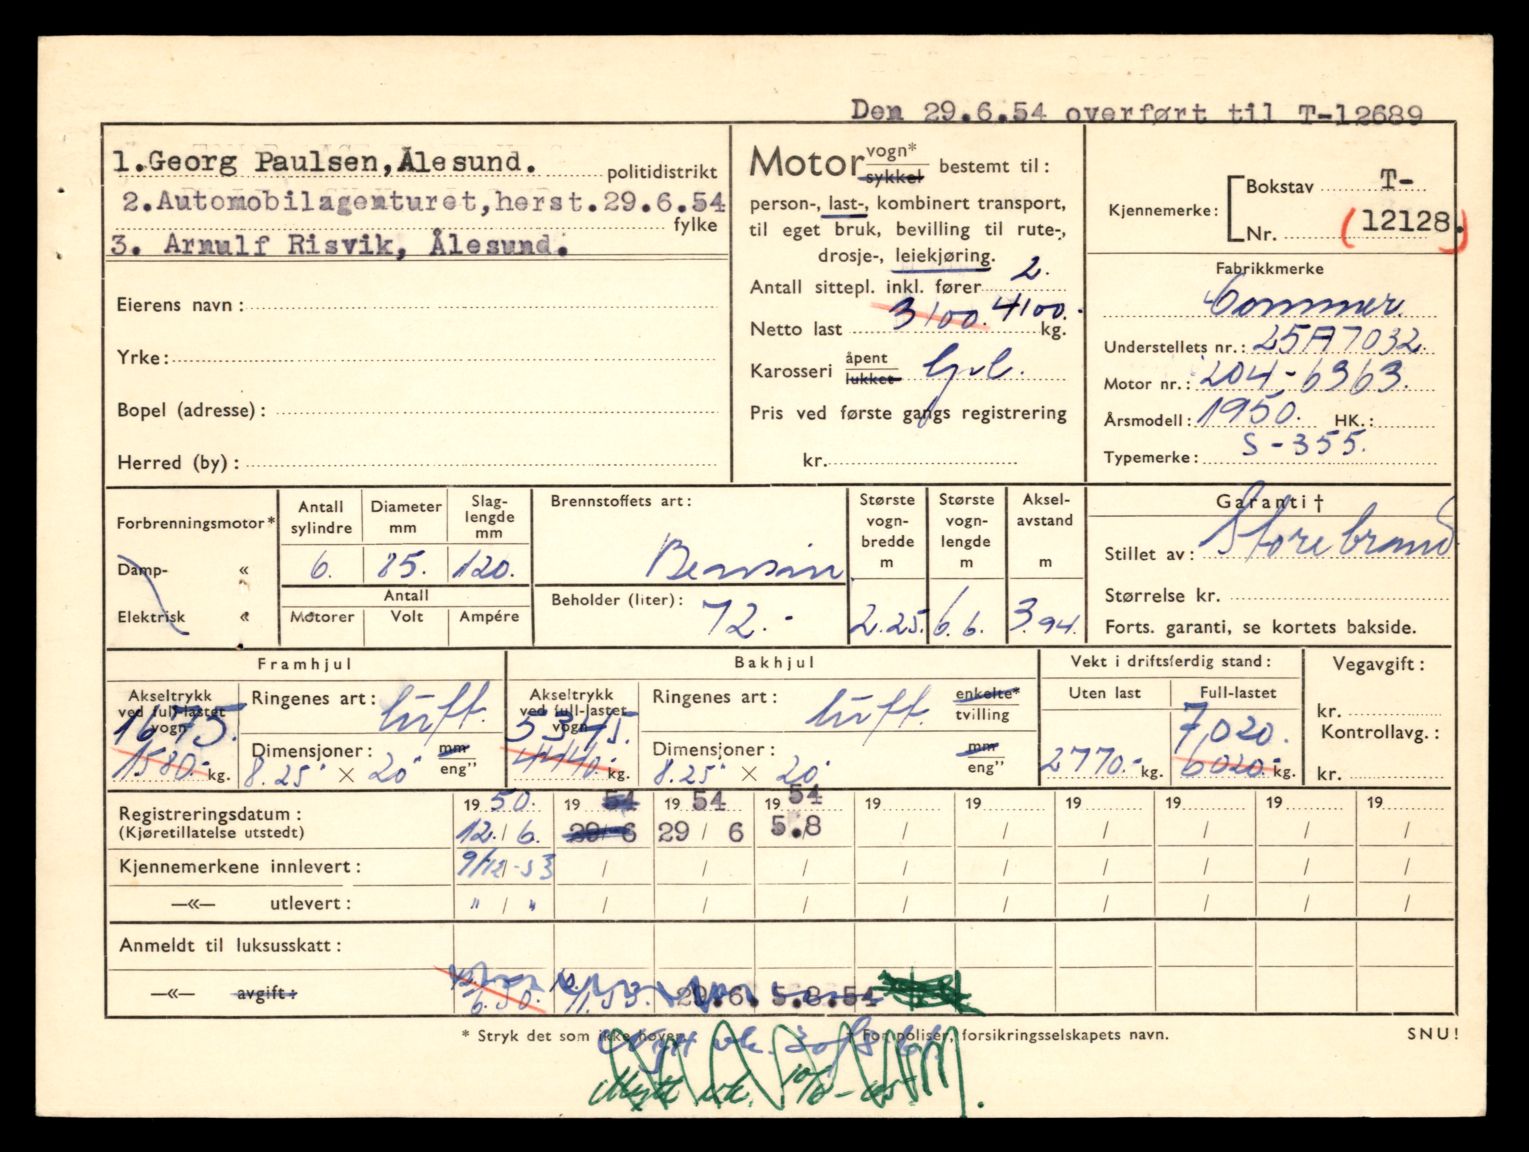 Den 29.6.54 overført til T-12689
1.Georg Paulsen, Ålesund. politidistrikt
2.Automobilagenturet, herst. 29.6.54
fylke
3. Arnulf Risvik, Ålesund.
Eierens navn:
Yrke:
Bopel (adresse):
Herred (by):
Motor vogn* sykkel bestemt til:
person-, last-, kombinert transport,
til eget bruk, bevilling til rute-,
drosje-, leiekjøring.
Antall sittepl. inkl. fører 2.
Netto last 3100. 4100.- kg.
Karosseri åpent lukket
Pris ved første gangs registrering
kr.
Kjennemerke: Bokstav T-
Nr. (12128.)
Fabrikkmerke
Commer.
Understellets nr.: 25A7032.
Motor nr.: 204-6363.
Årsmodell: 1950. HK.:
Typemerke: S-355.
Forbrenningsmotor*
Damp- «
Elektrisk «
Antall sylindre 6.
Diameter mm 85.
Slaglengde mm 120.
Antall
Motorer Volt Ampére
Brennstoffets art: Bensin
Beholder (liter): 72.-
Største vognbredde m 2.25.
Største vognlengde m 6.6.
Akselavstand m 3.94.
Garanti †
Stillet av: Storebrand.
Størrelse kr.
Forts. garanti, se kortets bakside.
Framhjul
Akseltrykk ved full-lastet vogn 1675. 1580.- kg.
Ringenes art: luft.
Dimensjoner: mm eng"
8.25" × 20"
Bakhjul
Akseltrykk ved full-lastet vogn 5345. 4440.- kg.
Ringenes art: luft. enkelte* tvilling
Dimensjoner: mm eng"
8.25" × 20"
Vekt i driftsferdig stand:
Uten last 2770.- kg.
Full-lastet 7,020. 6020.- kg.
Vegavgift:
kr.
Kontrollavg.:
kr.
Registreringsdatum: 19 50. 19 54 19 54 19 54 19 19 19 19 19 19
(Kjøretillatelse utstedt) 12./6. 29/6 29/6 5./8 / / / / / /
Kjennemerkene innlevert: 9/12-53 / / / / / / / / /
—«— utlevert: " / " / / / / / / / / /
Anmeldt til luksusskatt:
—«— avgift: 29.6. 5.8.54
* Stryk det som ikke høver. † For poliser, forsikringsselskapets navn. SNU!